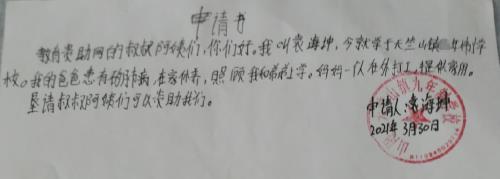 申请书
教育资助网的叔叔阿姨们,你们好。我叫袁海坤,今就学于天竺山镇九年制学
校。我的爸爸患有肺病,在家休养,照顾我和弟弟上学。妈妈一人在外打工,提供家用。
恳请叔叔阿姨们可以资助我们。
申请人:袁海坤
2021年3月30日
山镇九年制学校